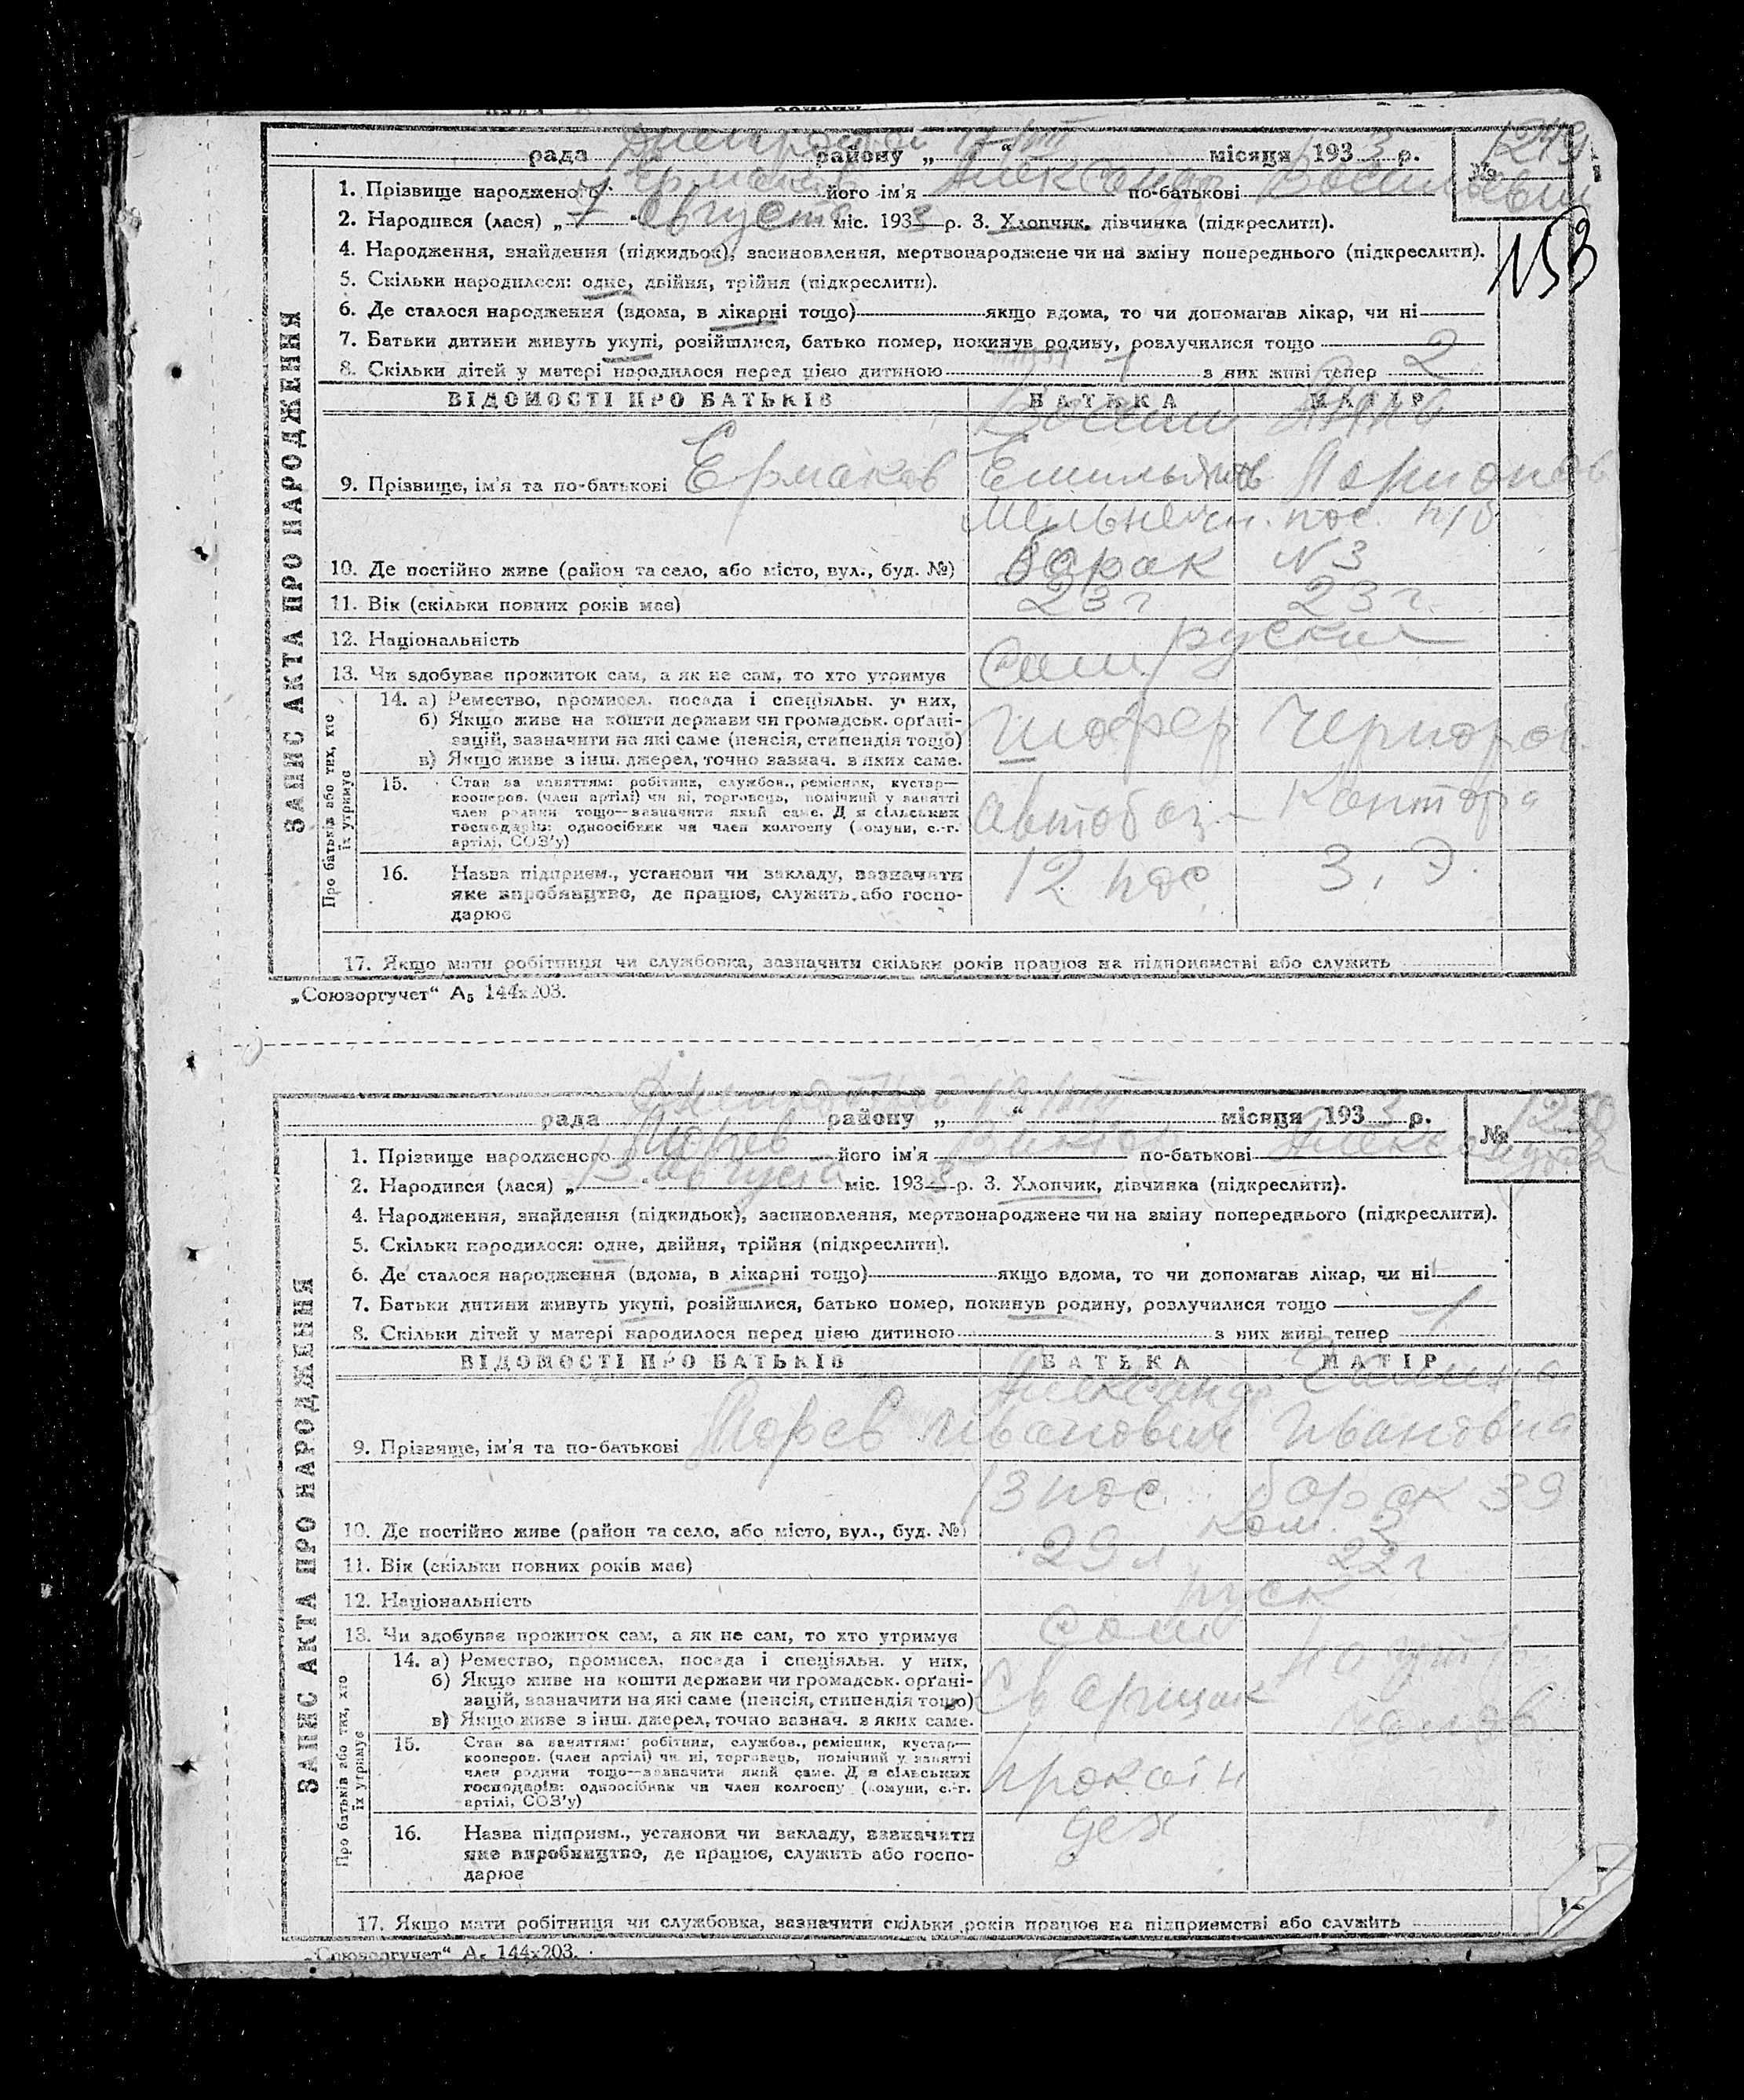 рада Днепрострой району „ 17/VIII “ місяця 1933 р. № 1249
1. Прізвище народженого Ермаков його ім'я Александр по-батькові Васильевич
2. Народився (лася) „ 7 “ августа міс. 1933 р. 3. Хлопчик, дівчинка (підкреслити).
153
4. Народження, знайдення (підкидьок), засиновлення, мертвонароджене чи на зміну попереднього (підкреслити).
5. Скільки народилося: одне, двійня, трійня (підкреслити).
6. Де сталося народження (вдома, в лікарні тощо) якщо вдома, то чи допомагав лікар, чи ні
7. Батьки дитини живуть укупі, розійшлися, батько помер, покинув родину, розлучилися тощо
8. Скільки дітей у матері народилося перед цією дитиною 1 з них живі тепер 2
ЗАПИС АКТА ПРО НАРОДЖЕННЯ
ВІДОМОСТІ ПРО БАТЬКІВ БАТЬКА МАТІР
9. Прізвище, ім'я та по-батькові Ермаков
10. Де постійно живе (район та село, або місто, вул., буд. №) барак № 3
11. Вік (скільки повних років має) 23 г 23 г.
12. Національність руские
13. Чи здобуває прожиток сам, а як не сам, то хто утримує Сам.
Про батьків або тих, хто їх утримує
14. а) Ремество, промисел. посада і спеціяльн. у них,
б) Якщо живе на кошти держави чи громадськ. орґані-
зацій, зазначити на які саме (пенсія, стипендія тощо) шофер Чернораб.
в) Якщо живе з інш. джерел, точно зазнач. з яких саме.
15. Стан за заняттям: робітник, службов., ремісник, кустар—
кооперов. (член артілі) чи ні, торговець, помічний у занятті
член родини тощо—зазначити який саме. Для сільських автобаз. Контора
господарів: одноосібник чи член колгоспу (комуни, с.-г.
артілі, СОЗ'у)
16. Назва підприєм., установи чи закладу, зазначити 12 пос. З. Э.
яке виробництво, де працює, служить або госпо-
дарює
17. Якщо мати робітниця чи службовка, зазначити скільки років працює на підприємстві або служить
„Союзоргучет“ А₅ 144х203.
рада району „ “ місяця 1933 р. № 1250
1. Прізвище народженого його ім'я Виктор по-батькові
2. Народився (лася) „ 13 “ августа міс. 1933 р. 3. Хлопчик, дівчинка (підкреслити).
4. Народження, знайдення (підкидьок), засиновлення, мертвонароджене чи на зміну попереднього (підкреслити).
5. Скільки народилося: одне, двійня, трійня (підкреслити).
6. Де сталося народження (вдома, в лікарні тощо) якщо вдома, то чи допомагав лікар, чи ні
7. Батьки дитини живуть укупі, розійшлися, батько помер, покинув родину, розлучилися тощо
8. Скільки дітей у матері народилося перед цією дитиною з них живі тепер 1
ЗАПИС АКТА ПРО НАРОДЖЕННЯ
ВІДОМОСТІ ПРО БАТЬКІВ БАТЬКА МАТІР
Александр
9. Прізвище, ім'я та по-батькові Иванович Ивановна
13 пос. барак 39
10. Де постійно живе (район та село, або місто, вул., буд. №) ком. 3
11. Вік (скільки повних років має) 29 л 22 г
12. Національність руск
13. Чи здобуває прожиток сам, а як не сам, то хто утримує Сам
Про батьків або тих, хто їх утримує
14. а) Ремество, промисел. посада і спеціяльн. у них,
б) Якщо живе на кошти держави чи громадськ. орґані-
зацій, зазначити на які саме (пенсія, стипендія тощо) Сварщик
в) Якщо живе з інш. джерел, точно зазнач. з яких саме.
15. Стан за заняттям: робітник, службов., ремісник, кустар—
кооперов. (член артілі) чи ні, торговець, помічний у занятті
член родини тощо—зазначити який саме. Для сільських
господарів: одноосібник чи член колгоспу (комуни, с.-г.
артілі, СОЗ'у)
16. Назва підприєм., установи чи закладу, зазначити цех
яке виробництво, де працює, служить або госпо-
дарює
17. Якщо мати робітниця чи службовка, зазначити скільки років працює на підприємстві або служить
„Союзоргучет“ А₅ 144х203.